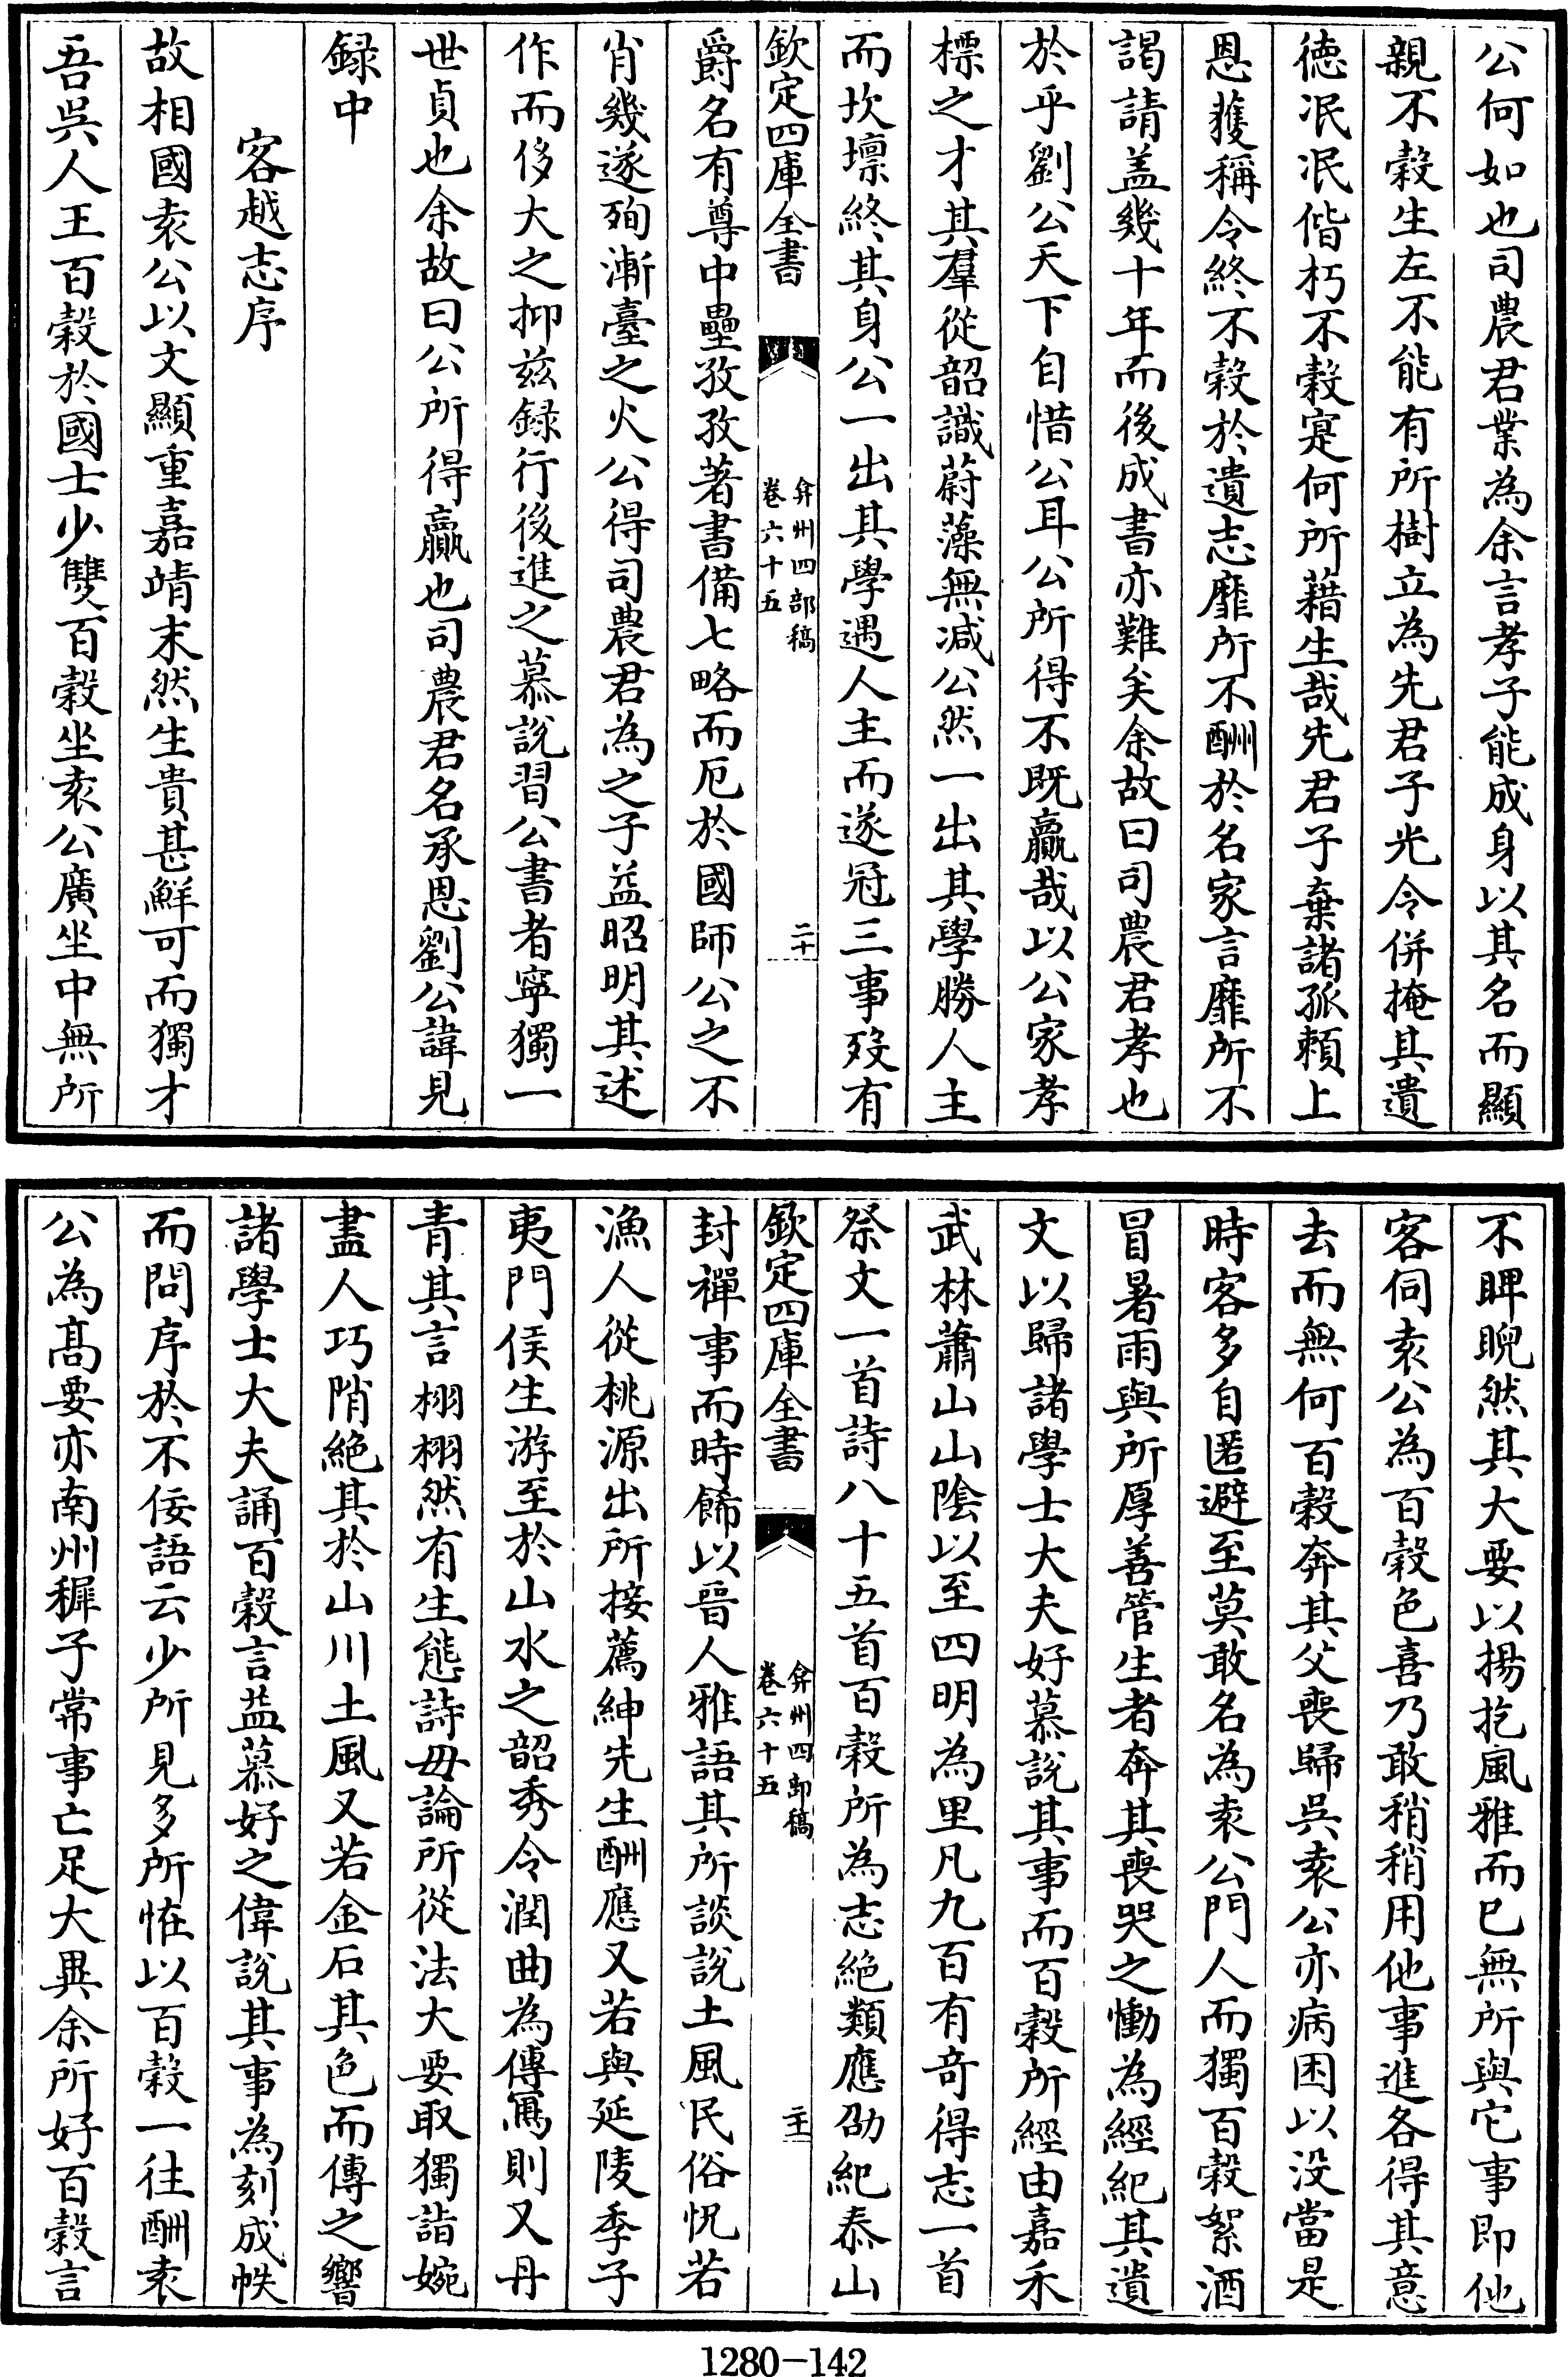 公何如也司農君業為余言孝子能成身以其名而顯
親不穀生左不能有所樹立為先君子光令併掩其遺
徳冺冺偕朽不穀寔何所藉生哉先君子棄諸孤頼上
恩獲稱令終不穀於遺志靡所不酬於名家言靡所不
謁請盖幾十年而後成書亦難矣余故曰司農君孝也
於乎劉公天下自惜公耳公所得不既贏哉以公家孝
標之才其羣從韶識蔚藻無减公然一出其學勝人主
而坎壈終其身公一出其學遇人主而遂冠三事歿有
欽定四庫全書
弇州四部稿
卷六十五
二十
爵名有尊中壘孜孜著書備七略而厄於國師公之不
肖幾遂殉漸臺之火公得司農君為之子益昭明其述
作而侈大之抑兹録行後進之慕説習公書者寧獨一
世貞也余故曰公所得贏也司農君名承恩劉公諱見
録中
客越志序
故相國袁公以文顯重嘉靖末然生貴甚鮮可而獨才
吾吳人王百穀於國士少雙百穀坐袁公廣坐中無所
不睥睨然其大要以揚扢風雅而已無所與它事即他
客伺袁公為百穀色喜乃敢稍稍用他事進各得其意
去而無何百穀奔其父喪歸吳袁公亦病困以没當是
時客多自匿避至莫敢名為袁公門人而獨百穀絮酒
冒暑雨與所厚善管生者奔其喪哭之慟為經紀其遺
文以歸諸學士大夫好慕説其事而百穀所經由嘉禾
武林蕭山山陰以至四明為里凡九百有奇得志一首
祭文一首詩八十五首百穀所為志絶類應劭紀泰山
欽定四庫全書
弇州四部稿
卷六十五
二十一
封禪事而時餙以晉人雅語其所談説土風民俗怳若
漁人從桃源出所接薦紳先生酬應又若與延陵季子
夷門侯生游至於山水之韶秀令潤曲為傳寫則又丹
青其言栩栩然有生態詩毋論所從法大要取獨詣婉
盡人巧陗絶其於山川土風又若金石其色而傳之響
諸學士大夫誦百穀言益慕好之偉説其事為刻成帙
而問序於不佞語云少所見多所恠以百穀一往酬袁
公為髙要亦南州穉子常事亡足大異余所好百穀言
1280-142